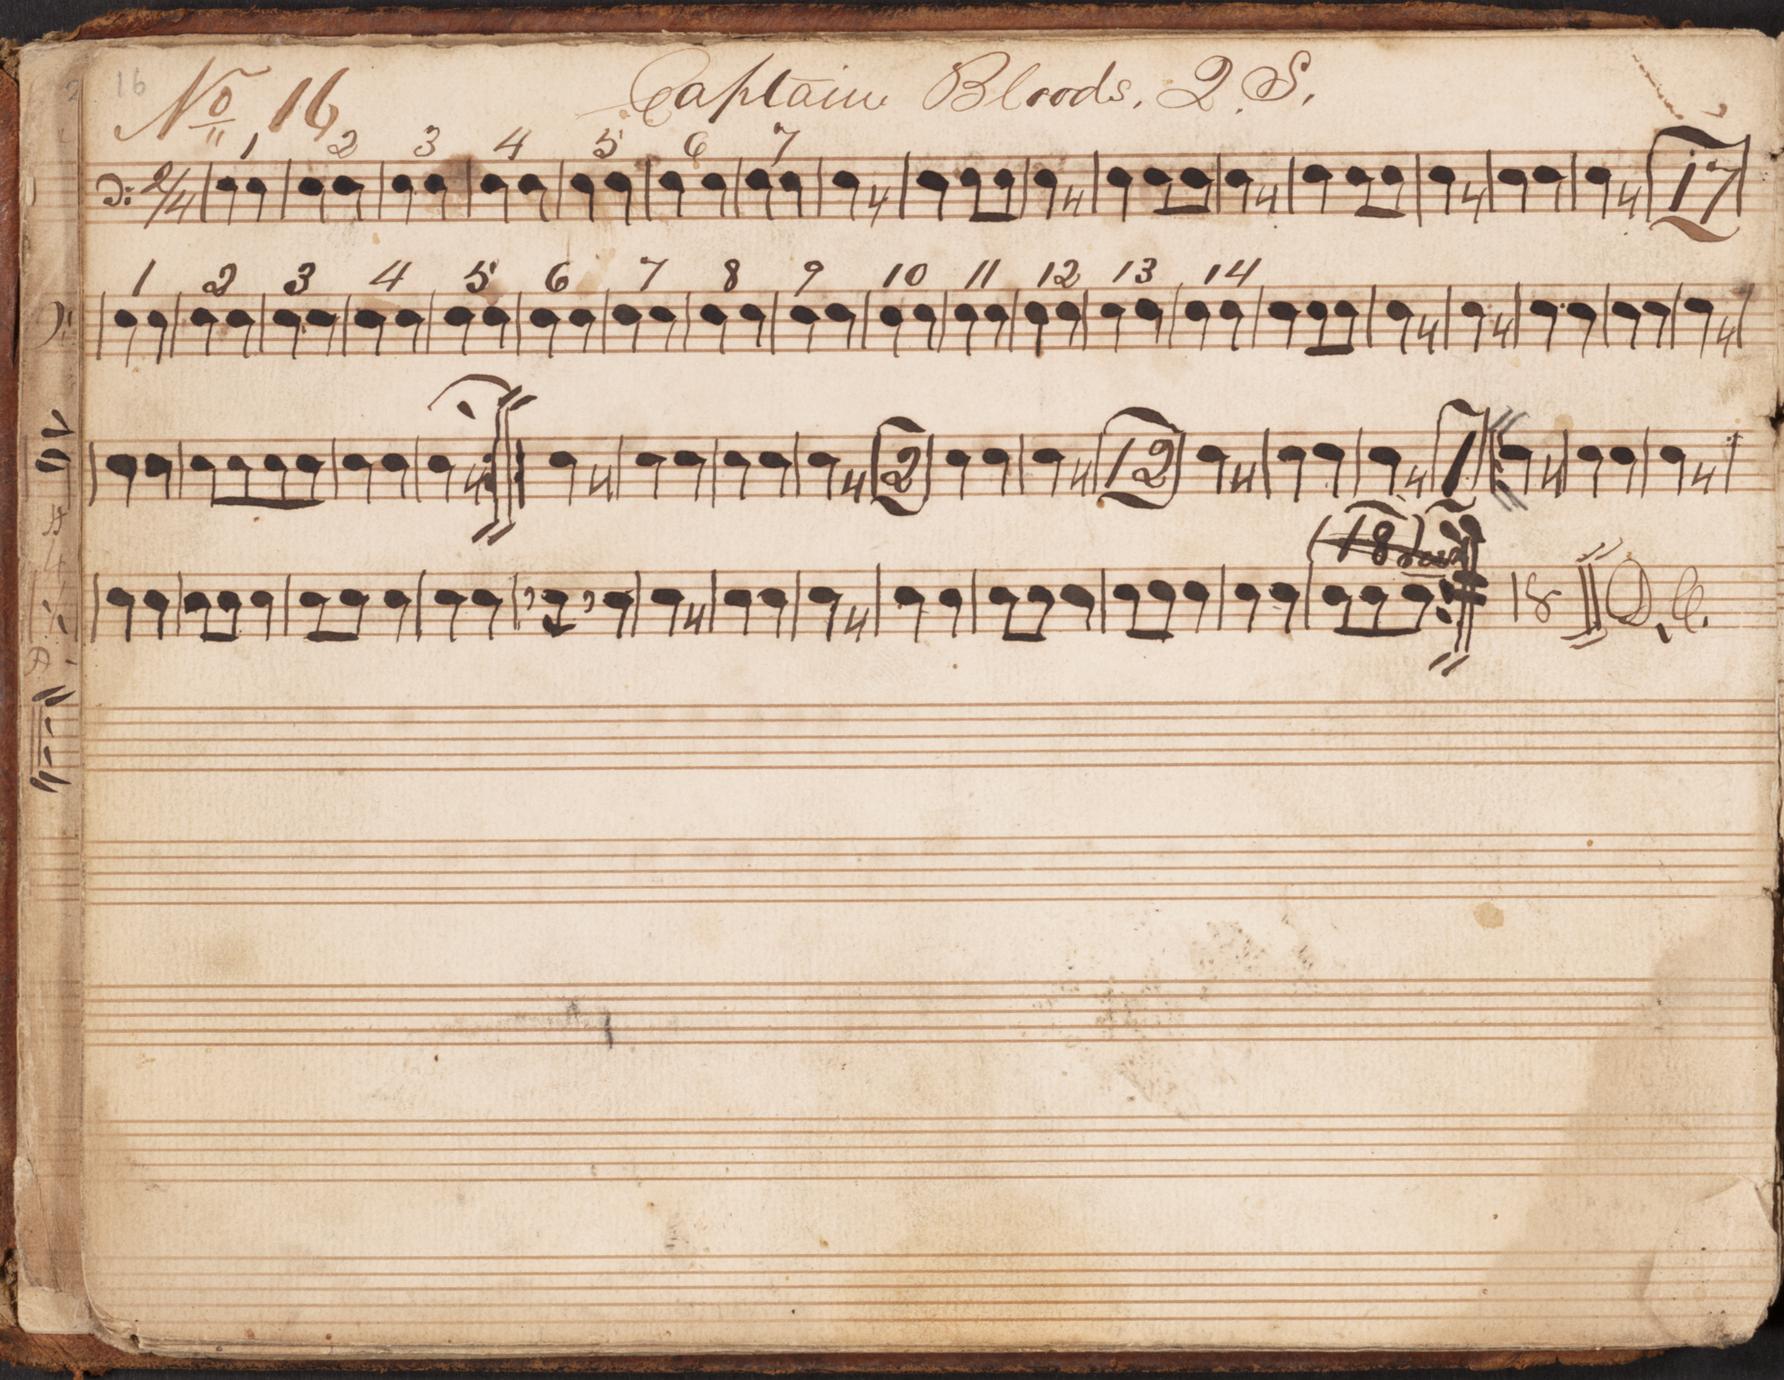 16
No 16 Captain Bloods. 2 S.
1 2 3 4 5 6 7
2/4 17
1 2 3 4 5 6 7 8 9 10 11 12 13 14
2 12 1
18
18 D. C.